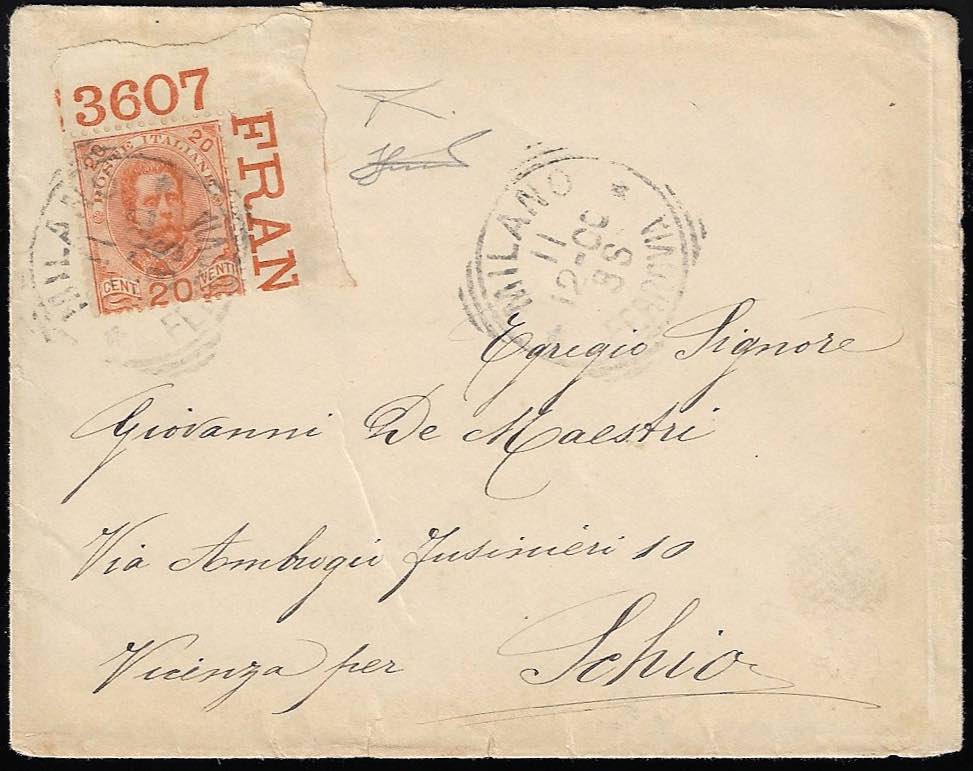 3607
FRAN
20 20
POSTE ITALIANE
CENT. 20 VENTI
MILANO
FERROVIA
MILANO
11
12-OC
95
FERROVIA
Egregio Signore
Giovanni De Maestri
Via Ambrogio Fusinieri 10
Vicenza per Schio